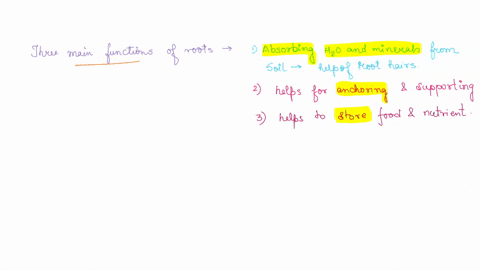 Three main functions of roots → 1) Absorbing H₂O and minerals from
Soil → help of Root hairs.
2) helps for anchoring & supporting
3) helps to store food & nutrient.